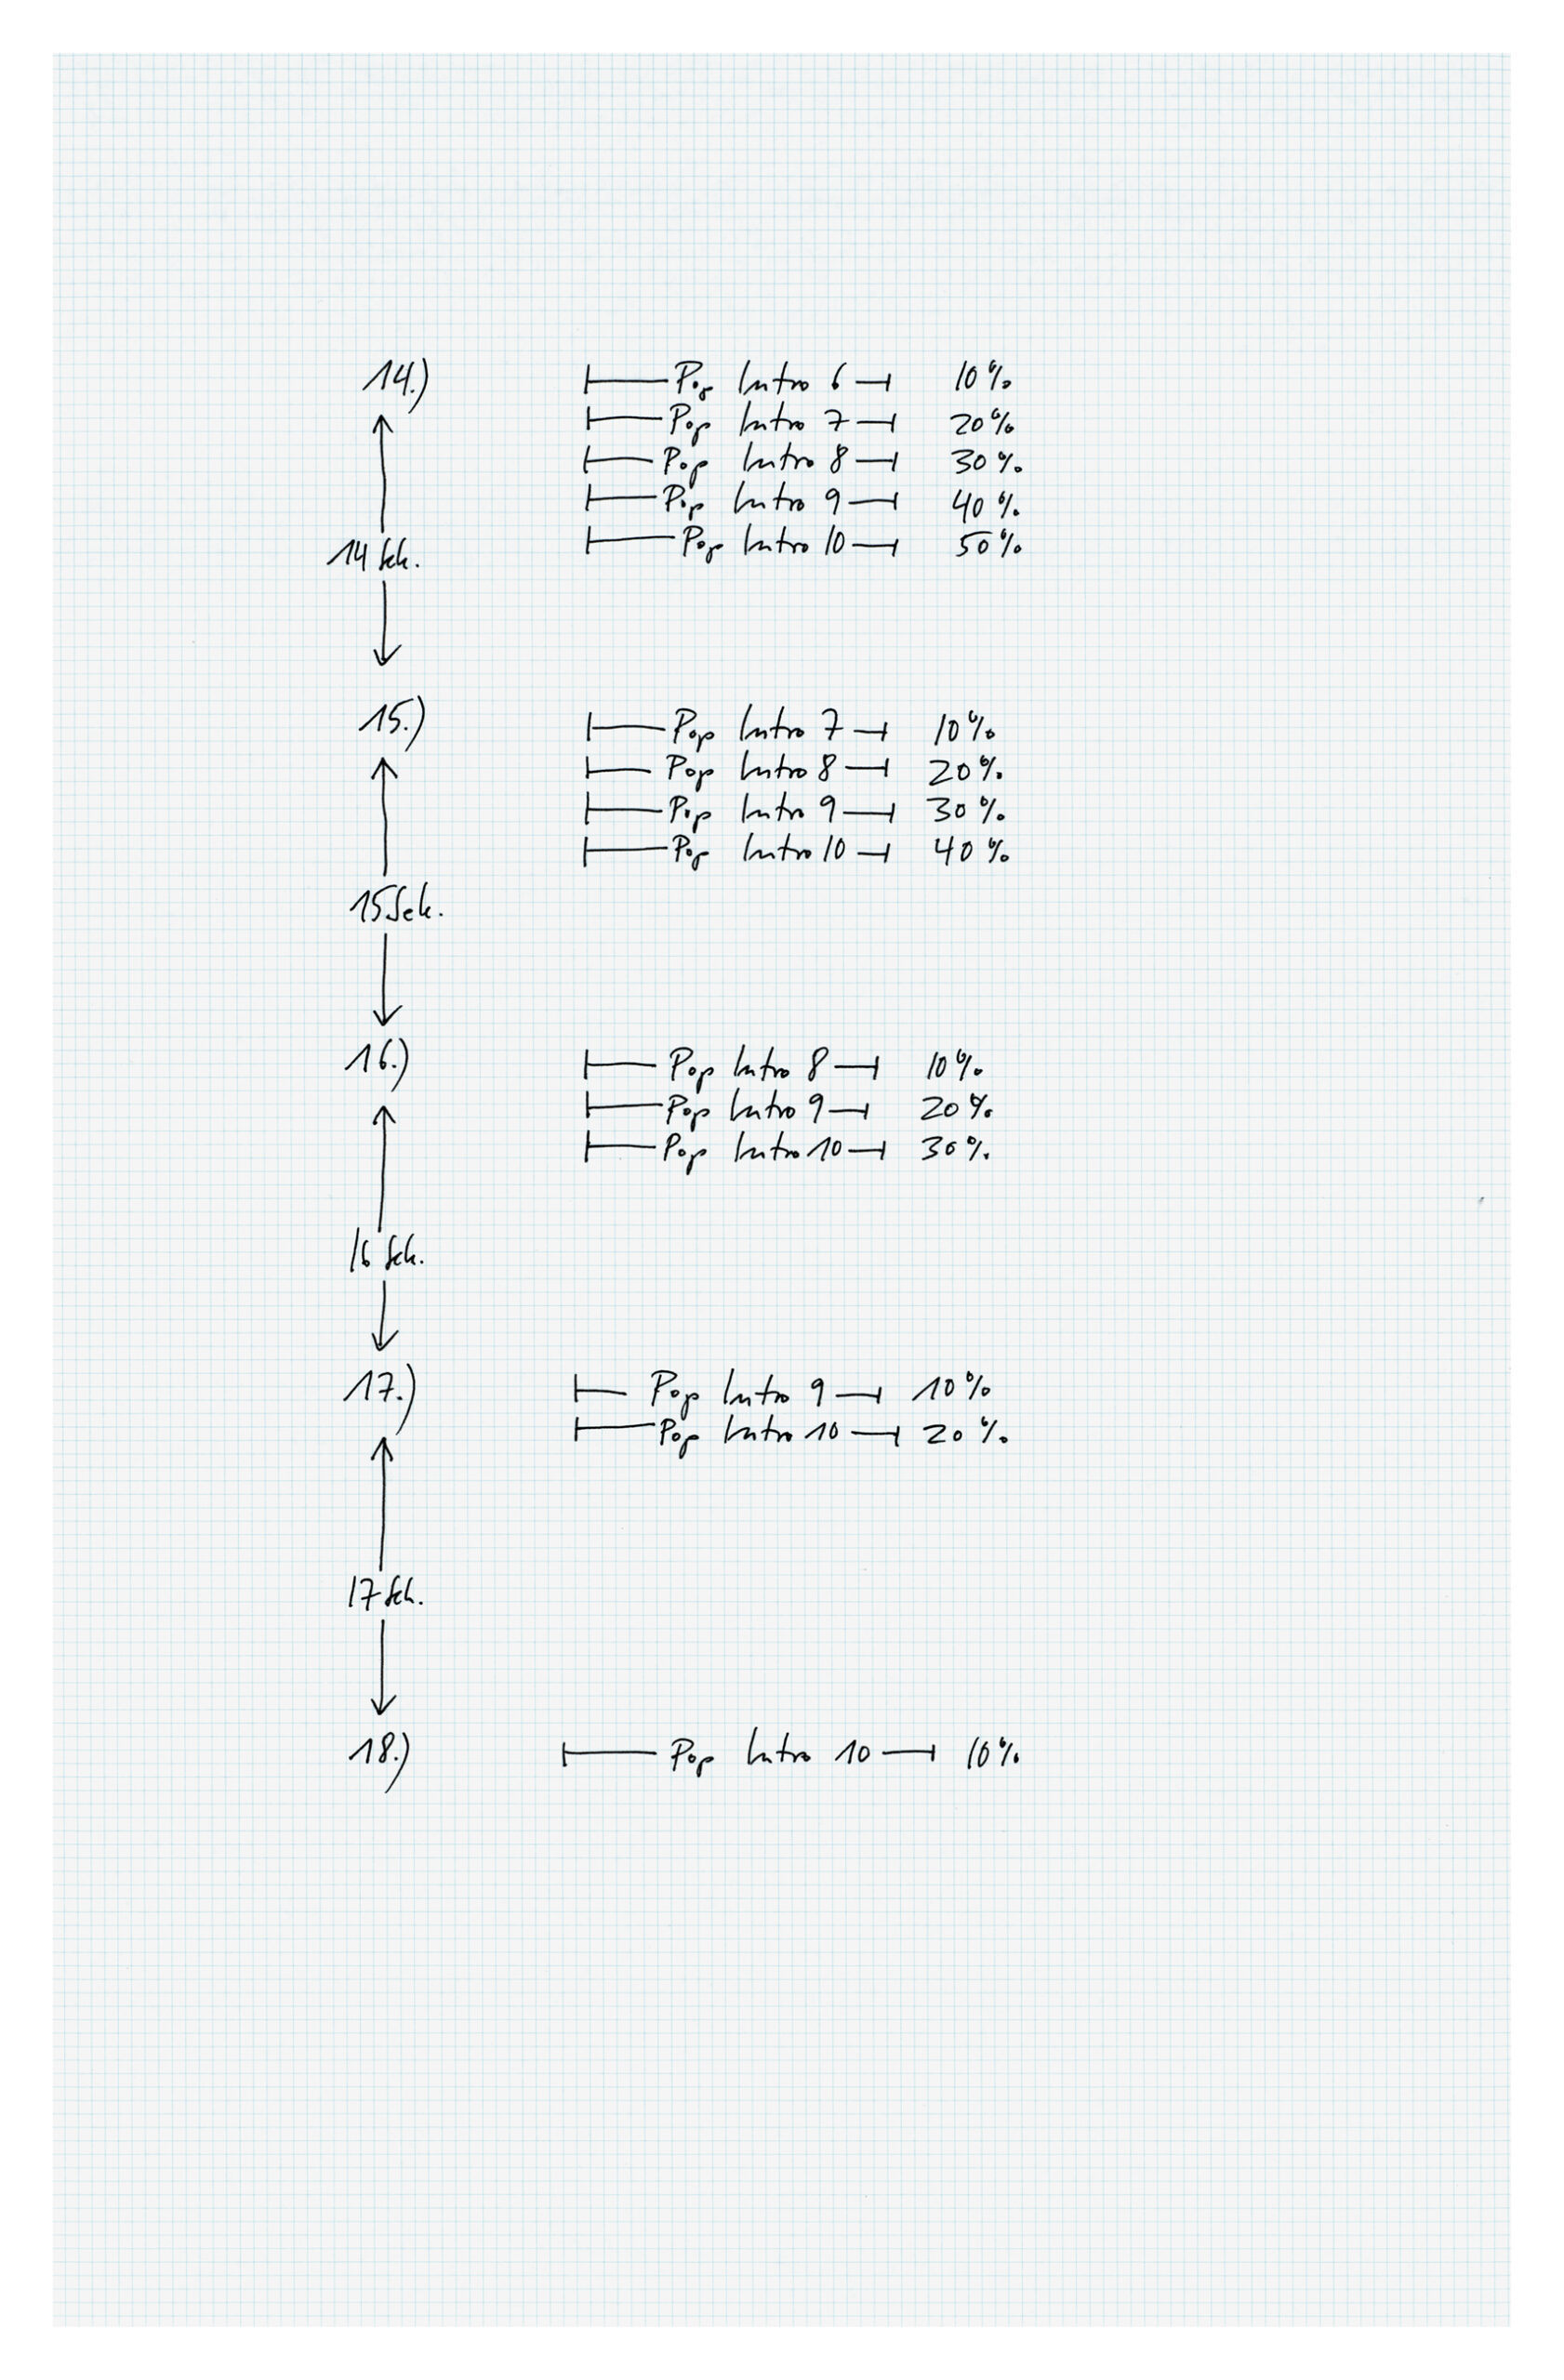 14.) Pop Intro 6 10%
Pop Intro 7 20%
Pop Intro 8 30%
Pop Intro 9 40%
Pop Intro 10 50%
14 Sek.
15.) Pop Intro 7 10%
Pop Intro 8 20%
Pop Intro 9 30%
Pop Intro 10 40%
15 Sek.
16.) Pop Intro 8 10%
Pop Intro 9 20%
Pop Intro 10 30%
16 Sek.
17.) Pop Intro 9 10%
Pop Intro 10 20%
17 Sek.
18.) Pop Intro 10 10%